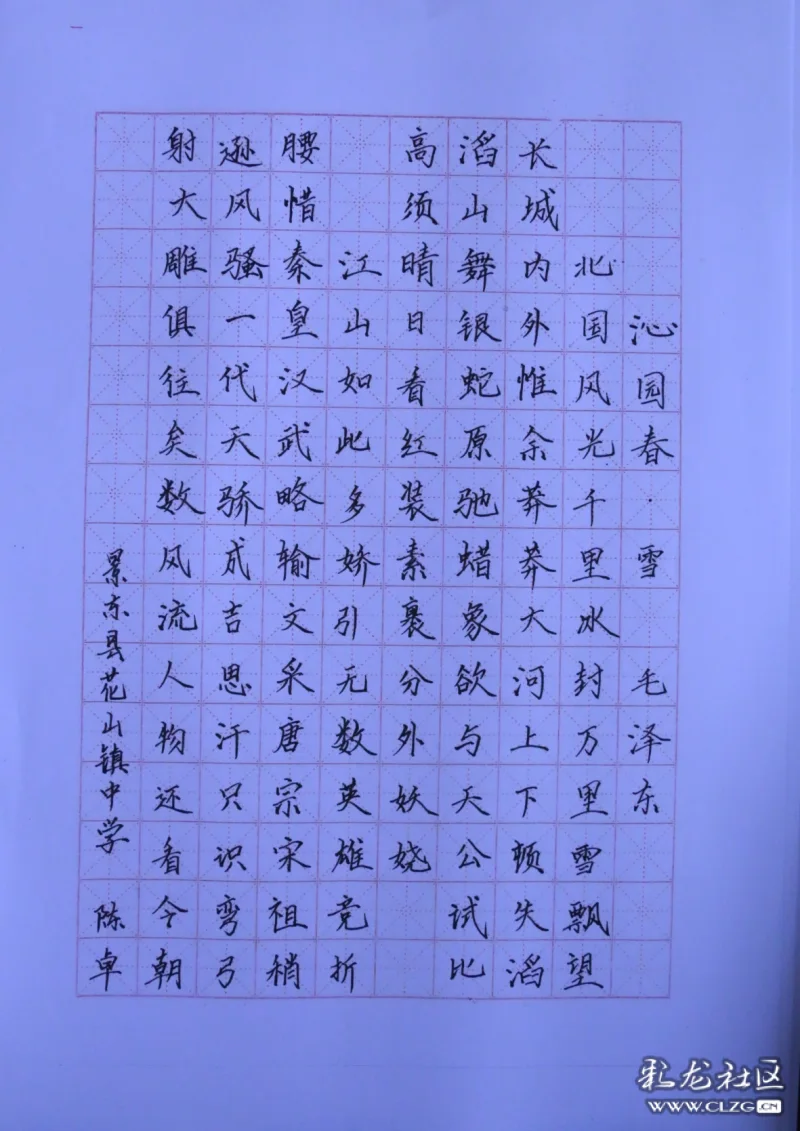 沁园春·雪 毛泽东
北国风光千里冰封万里雪飘望
长城内外惟余莽莽大河上下顿失滔
滔山舞银蛇原驰蜡象欲与天公试比
高须晴日看红装素裹分外妖娆
江山如此多娇引无数英雄竞折
腰惜秦皇汉武略输文采唐宗宋祖稍
逊风骚一代天骄成吉思汗只识弯弓
射大雕俱往矣数风流人物还看今朝
景东县花山镇中学 陈卓
彩龙社区
WWW.CLZG.CN